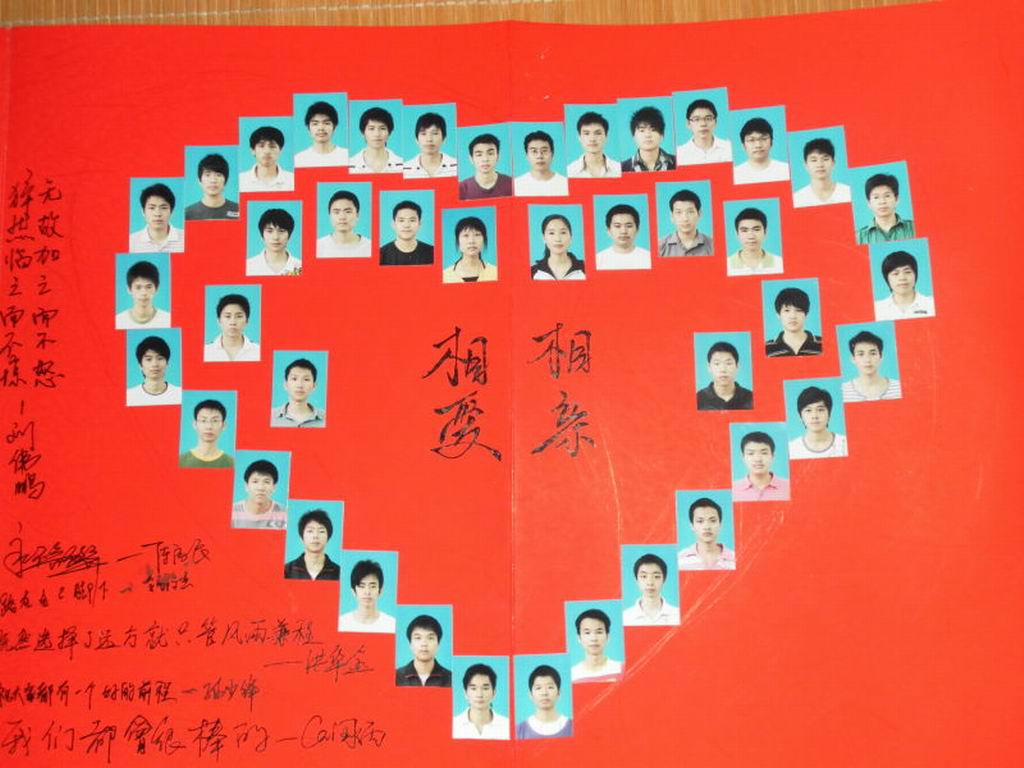 相亲
相爱
无故加之而不怒
猝然临之而不惊 — 刘伟鹏
路在自己脚下 —
既然选择了远方就只管风雨兼程
— 洪华金
祝大家都有一个好的前程 —
我们都会很棒的 —